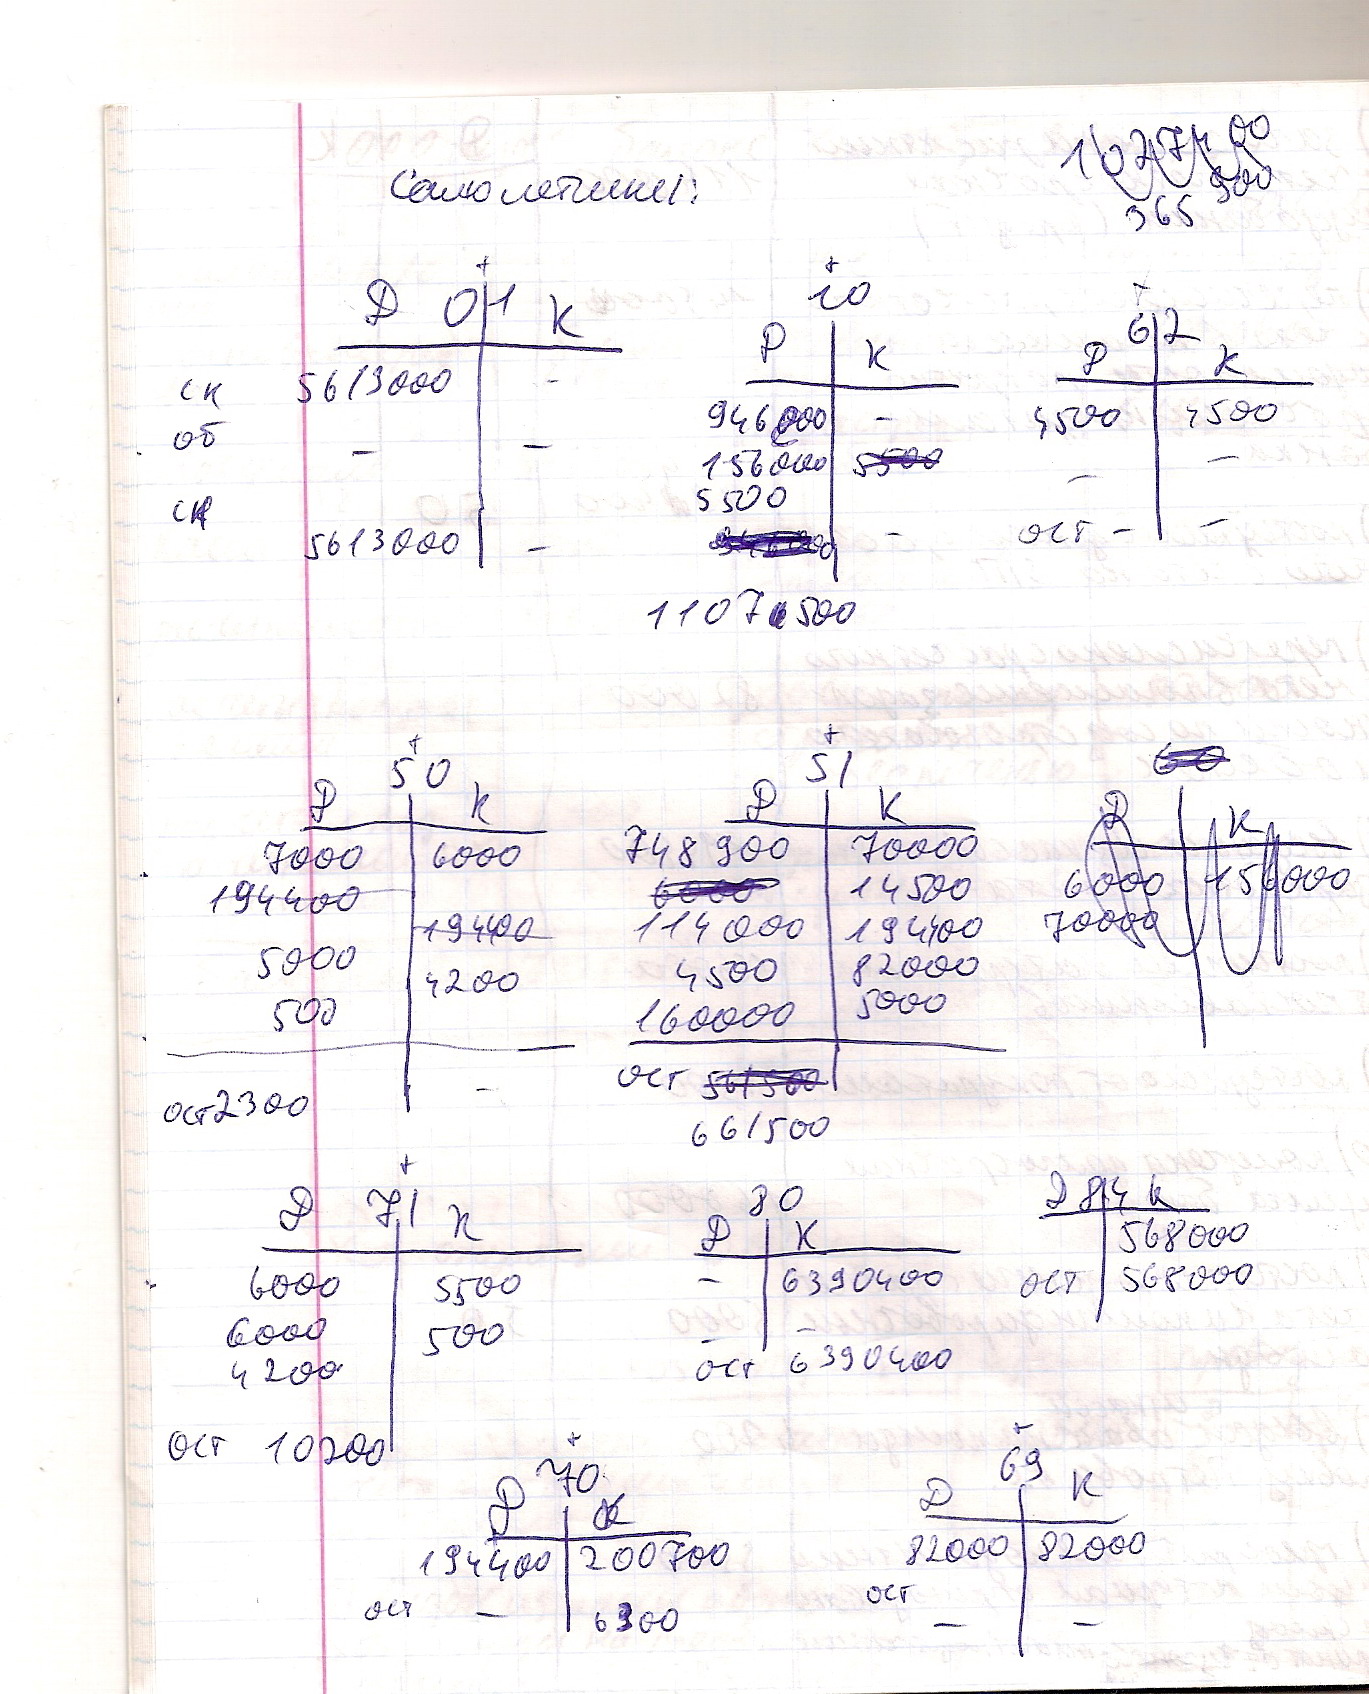 1027400
900
365
Самолетики:
+ + +
Д 01 К
10
Д К
62
Д К
ск 5613000 -
об - -
ск 5613000 -
946000 -
156000 5500
5500
-
1107500
4500 4500
- -
ост - -
+ +
50
Д К
7000 6000
194400
19400
5000
4200
500
ост 2300 -
51
Д К
748900 70000
6000 14500
114000 194400
4500 82000
160000 5000
ост 561500
661500
60
Д К
6000 156000
70000
+
Д 71 К
6000 5500
6000 500
4200
ост 10200
80
Д К
- 6390400
- -
ост 6390400
Д 84 К
568000
ост 568000
+
70
Д К
194400 200700
ост - 6300
69
Д К
82000 82000
ост
- -